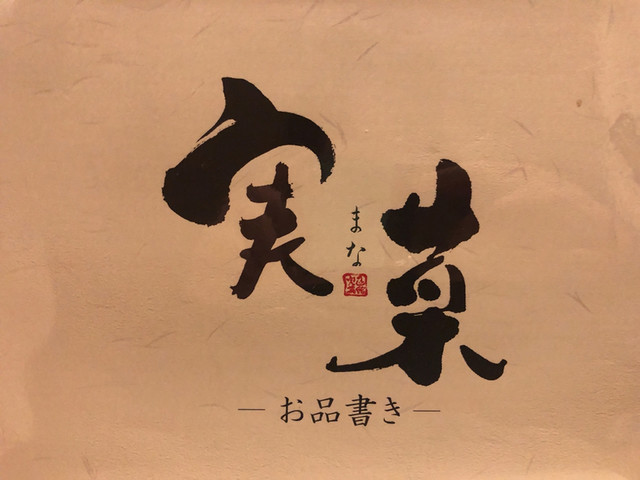 実菜
まな
― お品書き ―